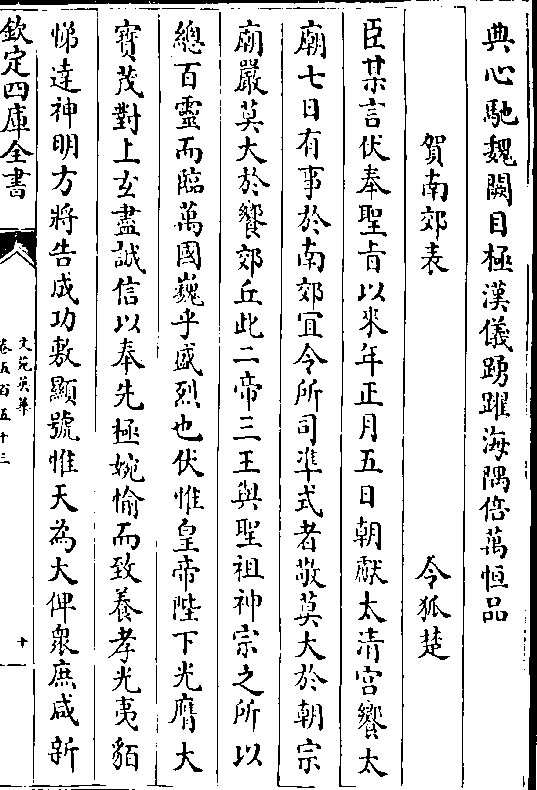 典心馳魏闕目極漢儀踴躍海隅倍萬恒品
賀南郊表 令狐楚
臣某言伏奉聖旨以來年正月五日朝獻太清宫饗太
廟七日有事於南郊宜令所司準式者敬莫大於朝宗
廟嚴莫大於饗郊丘此二帝三王與聖祖神宗之所以
總百靈而臨萬國巍乎盛烈也伏惟皇帝陛下光膺大
寳茂對上𤣥盡誠信以奉先極婉愉而致養孝光夷貊
悌達神明方將告成功敷顯號惟天為大俾衆庶咸新
欽定四庫全書
文苑英華
卷五百五十三
十